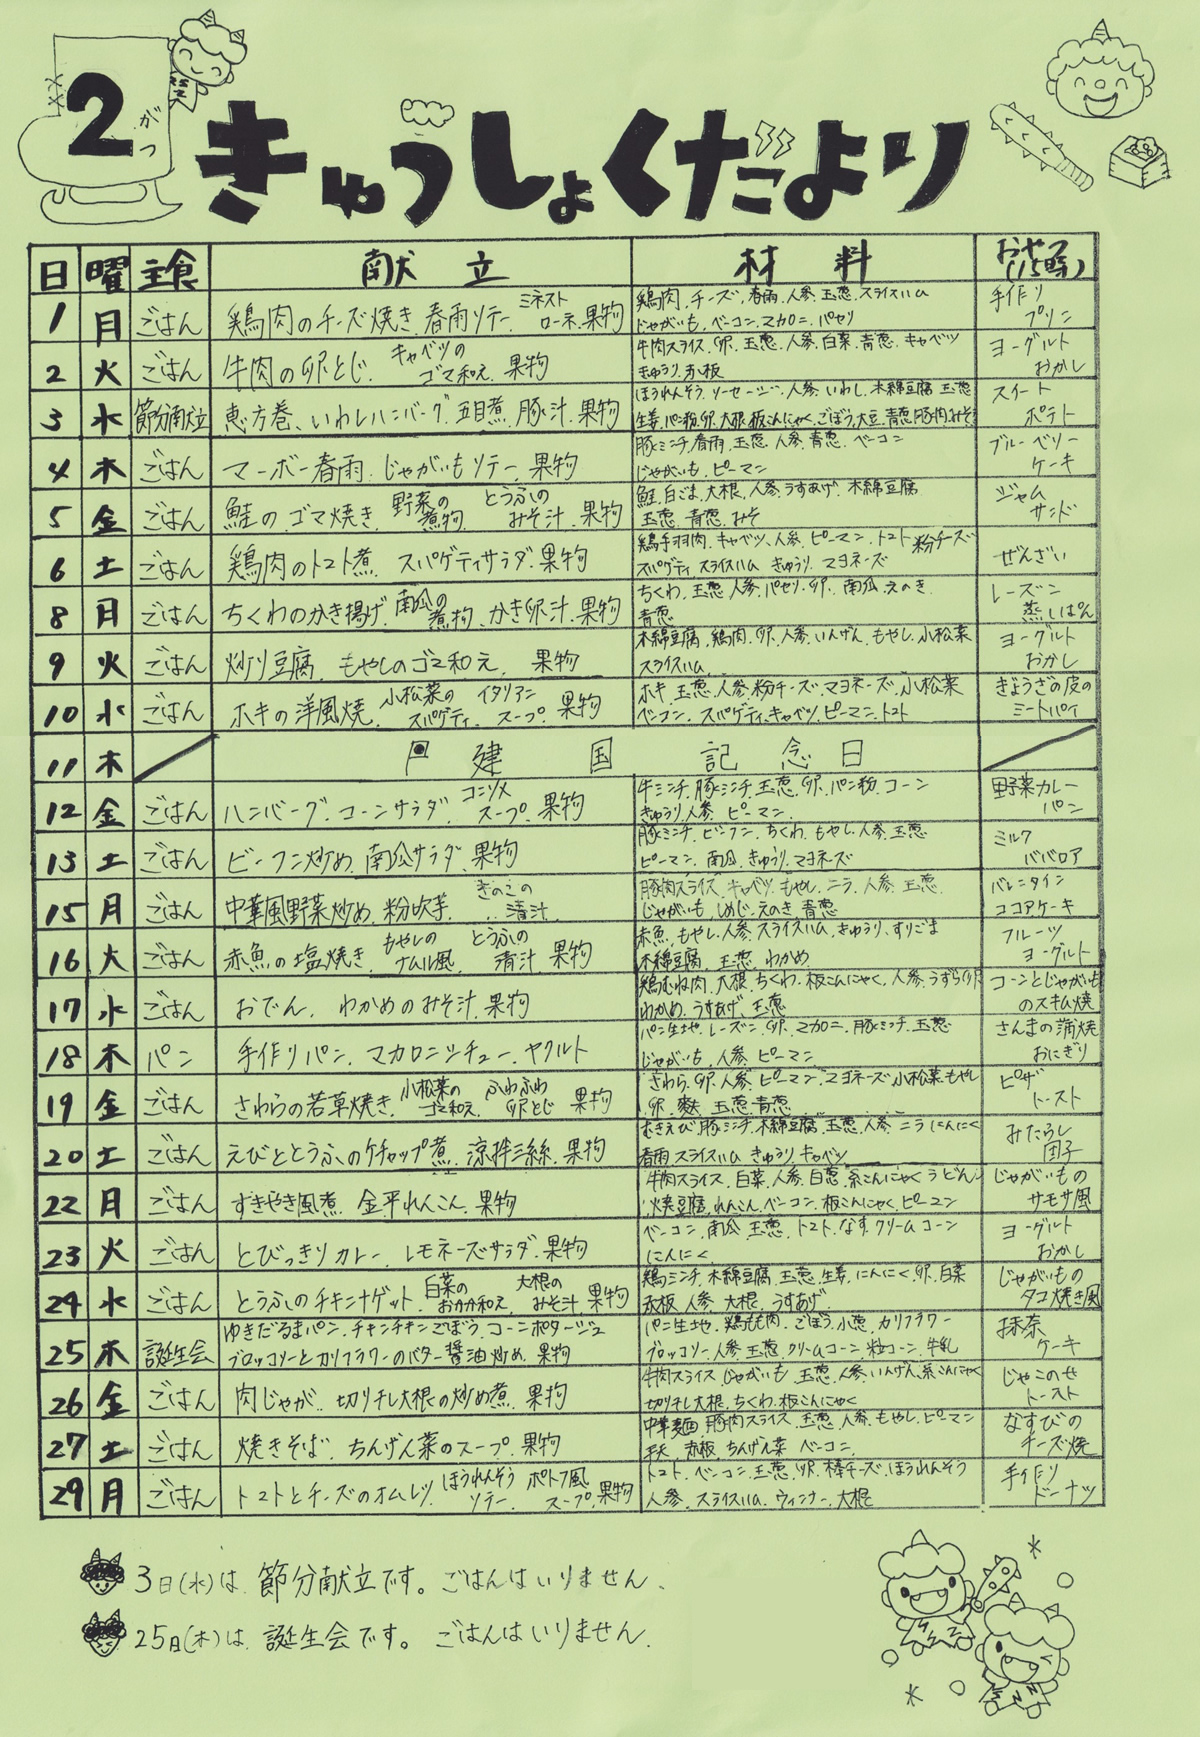 2がつ
きゅうしょくだより
日 曜 主食 献立 材料 おやつ(15時)
1 月 ごはん 鶏肉のチーズ焼き、春雨ソテー、ミネストローネ、果物 鶏肉、チーズ、春雨、人参、玉葱、スライスハム じゃがいも、ベーコン、マカロニ、パセリ 手作りプリン
2 火 ごはん 牛肉の卵とじ、キャベツのゴマ和え、果物 牛肉スライス、卵、玉葱、人参、白菜、青葱、キャベツ きゅうり、赤板 ヨーグルト おかし
3 水 節分献立 恵方巻、いわしハンバーグ、五目煮、豚汁、果物 ほうれんそう、ソーセージ、人参、いわし、木綿豆腐、玉葱 生姜、パン粉、卵、大根、板こんにゃく、ごぼう、大豆、青葱、豚肉、みそ スイートポテト
4 木 ごはん マーボー春雨、じゃがいもソテー、果物 豚ミンチ、春雨、玉葱、人参、青葱、ベーコン じゃがいも、ピーマン ブルーベリーケーキ
5 金 ごはん 鮭のゴマ焼き、野菜の煮物、とうふのみそ汁、果物 鮭、白ごま、大根、人参、うすあげ、木綿豆腐 玉葱、青葱、みそ ジャムサンド
6 土 ごはん 鶏肉のトマト煮、スパゲティサラダ、果物 鶏手羽肉、キャベツ、人参、ピーマン、トマト、粉チーズ スパゲティ、スライスハム、きゅうり、マヨネーズ ぜんざい
8 月 ごはん ちくわのかき揚げ、南瓜の煮物、かき卵汁、果物 ちくわ、玉葱、人参、パセリ、卵、南瓜、えのき 青葱 レーズン蒸しぱん
9 火 ごはん 炒り豆腐、もやしのゴマ和え、果物 木綿豆腐、鶏肉、卵、人参、いんげん、もやし、小松菜 スライスハム ヨーグルト おかし
10 水 ごはん ホキの洋風焼、小松菜のスパゲティ、イタリアンスープ、果物 ホキ、玉葱、人参、粉チーズ、マヨネーズ、小松菜 ベーコン、スパゲティ、キャベツ、ピーマン、トマト ぎょうざの皮のミートパイ
11 木 建国記念日
12 金 ごはん ハンバーグ、コーンサラダ、コンソメスープ、果物 牛ミンチ、豚ミンチ、玉葱、卵、パン粉、コーン きゅうり、人参、ピーマン 野菜カレーパン
13 土 ごはん ビーフン炒め、南瓜サラダ、果物 豚ミンチ、ビーフン、ちくわ、もやし、人参、玉葱 ピーマン、南瓜、きゅうり、マヨネーズ ミルクババロア
15 月 ごはん 中華風野菜炒め、粉吹芋、きのこの清汁 豚肉スライス、キャベツ、もやし、ニラ、人参、玉葱 じゃがいも、しめじ、えのき、青葱 バレンタインココアケーキ
16 火 ごはん 赤魚の塩焼き、もやしのナムル風、とうふの清汁、果物 赤魚、もやし、人参、スライスハム、きゅうり、すりごま 木綿豆腐、玉葱、わかめ フルーツヨーグルト
17 水 ごはん おでん、わかめのみそ汁、果物 鶏むね肉、大根、ちくわ、板こんにゃく、人参、うずら卵 わかめ、うすあげ、玉葱 コーンとじゃがいものスキム焼
18 木 パン 手作りパン、マカロニシチュー、ヤクルト パン生地、レーズン、卵、マカロニ、豚ミンチ、玉葱 じゃがいも、人参、ピーマン さんまの蒲焼おにぎり
19 金 ごはん さわらの若草焼き、小松菜のゴマ和え、ふわふわ卵とじ、果物 さわら、卵、人参、ピーマン、マヨネーズ、小松菜、もやし 卵、麩、玉葱、青葱 ピザトースト
20 土 ごはん えびととうふのケチャップ煮、涼拌三絲、果物 むきえび、豚ミンチ、木綿豆腐、玉葱、人参、ニラ、にんにく 春雨、スライスハム、きゅうり、キャベツ みたらし団子
22 月 ごはん すきやき風煮、金平れんこん、果物 牛肉スライス、白菜、人参、白葱、糸こんにゃく、うどん 焼豆腐、れんこん、ベーコン、板こんにゃく、ピーマン じゃがいものサモサ風
23 火 ごはん とびっきりカレー、レモネーズサラダ、果物 ベーコン、南瓜、玉葱、トマト、なす、クリームコーン にんにく ヨーグルト おかし
24 水 ごはん とうふのチキンナゲット、白菜のおかか和え、大根のみそ汁、果物 鶏ミンチ、木綿豆腐、玉葱、生姜、にんにく、卵、白菜 赤板、人参、大根、うすあげ じゃがいものタコ焼き風
25 木 誕生会 ゆきだるまパン、チキンチキンごぼう、コーンポタージュ ブロッコリーとカリフラワーのバター醤油炒め、果物 パン生地、鶏もも肉、ごぼう、小葱、カリフラワー ブロッコリー、人参、玉葱、クリームコーン、粒コーン、牛乳 抹茶ケーキ
26 金 ごはん 肉じゃが、切り干し大根の炒め煮、果物 牛肉スライス、じゃがいも、玉葱、人参、いんげん、糸こんにゃく 切り干し大根、ちくわ、板こんにゃく じゃこのせトースト
27 土 ごはん 焼きそば、ちんげん菜のスープ、果物 中華麺、豚肉スライス、玉葱、人参、もやし、ピーマン 赤板、ちんげん菜、ベーコン なすびのチーズ焼
29 月 ごはん トマトとチーズのオムレツ、ほうれんそうソテー、ポトフ風スープ、果物 トマト、ベーコン、玉葱、卵、棒チーズ、ほうれんそう 人参、スライスハム、ウィンナー、大根 手作りドーナツ
3日(水)は、節分献立です。ごはんはいりません。
25日(木)は、誕生会です。ごはんはいりません。